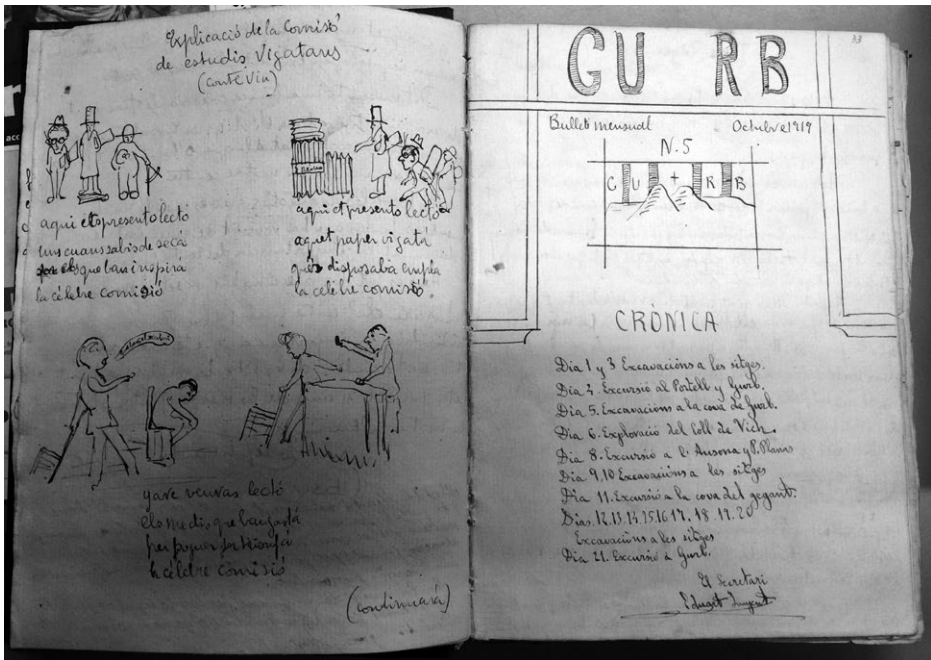 Explicació de la Comisó
de estudis Vigatans
(conte viu)
aqui etspresento lectó
uns cuans sabis de secá
els que ban inspirá
la célebre comisió
aqui et presento lectó
aquet paper vigatá
qués disposaba emplá
la celebre comisió.
yare veuras lectó
els medis que ban gastá
per poguer fer triomfá
la célebre comisió
(continuará)
33
GURB
Bulleti mensual Octubre 1919
N. 5
G U + R B
CRÒNICA
Dia 1 y 3 Excavacións a les sitges.
Dia 4. Excursió al Portell y Gurb.
Dia 5. Excavacións a la cova de Gurb.
Dia 6. Exploració del Coll de Vich.
Dia 8. Excursió a l'Ausona y P. Planas
Dia 9, 10 Excavacións a les sitges
Dia 11. Excursió a la cova del gegant.
Dias. 12. 13. 14. 15. 16 17. 18. 19. 20
Excavacións a les sitges
Dia 21. Excursió a Gurb.
El Secretari